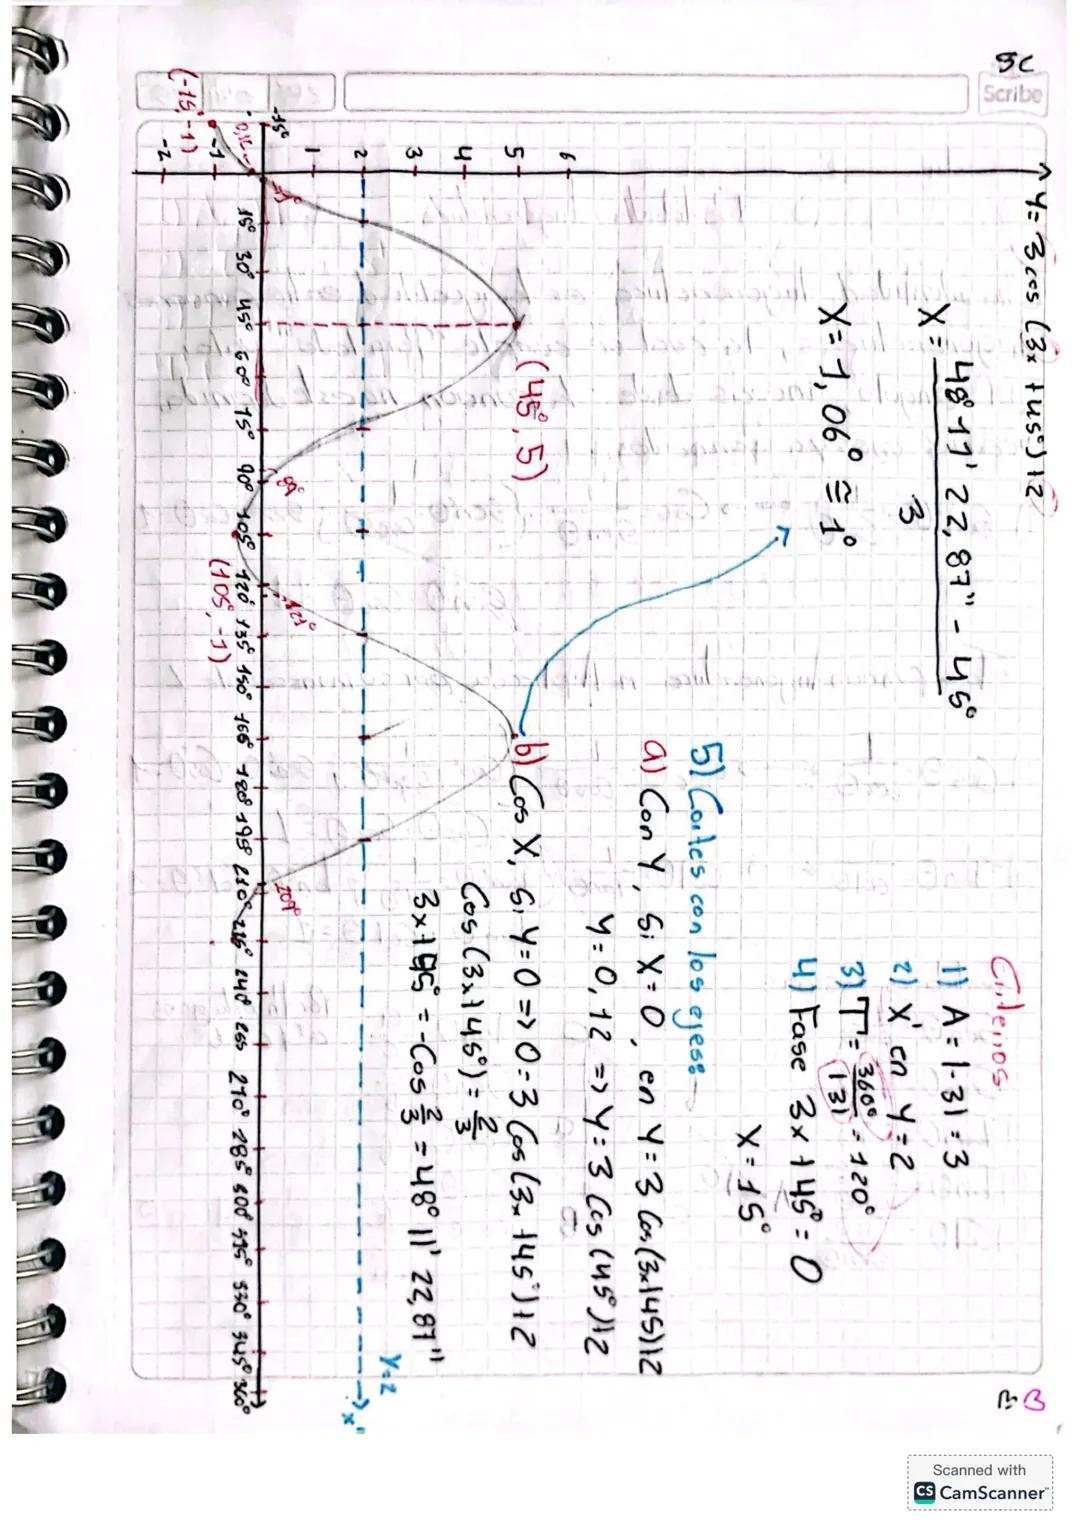 Scribe
y = 3 cos (3x + 45°) + 2
Criterios
1) A = |-3| = 3
2) X' en y = 2
3) T = 360° / |3| = 120°
4) Fase 3x + 45° = 0
X = 15°
5) Cortes con los ejes:
a) Con Y, si X = 0, en y = 3 Cos(3x+45)+2
y = 0,12 => y = 3 Cos (45°)+2
b) Cos X, si y = 0 => 0 = 3 Cos (3x + 45°)+2
Cos (3x+45°) = 2/3
3x+45° = -Cos 2/3 = 48° 11' 22,87"
X = 48° 11' 22,87" - 45° / 3
X = 1,06° ≅ 1°
6
5
4
3
2
1
-1
-2
y=2
x'
(45°, 5)
(-15°, -1)
(105°, -1)
0,12
89°
121°
209°
-15° 15° 30° 45° 60° 75° 90° 105° 120° 135° 150° 165° 180° 195° 210° 240° 270° 285° 300° 330° 345° 360°
Scanned with
CS CamScanner